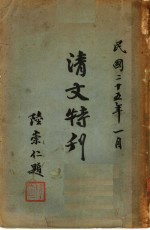 民國二十五年一月
清文特刊
陸索仁題